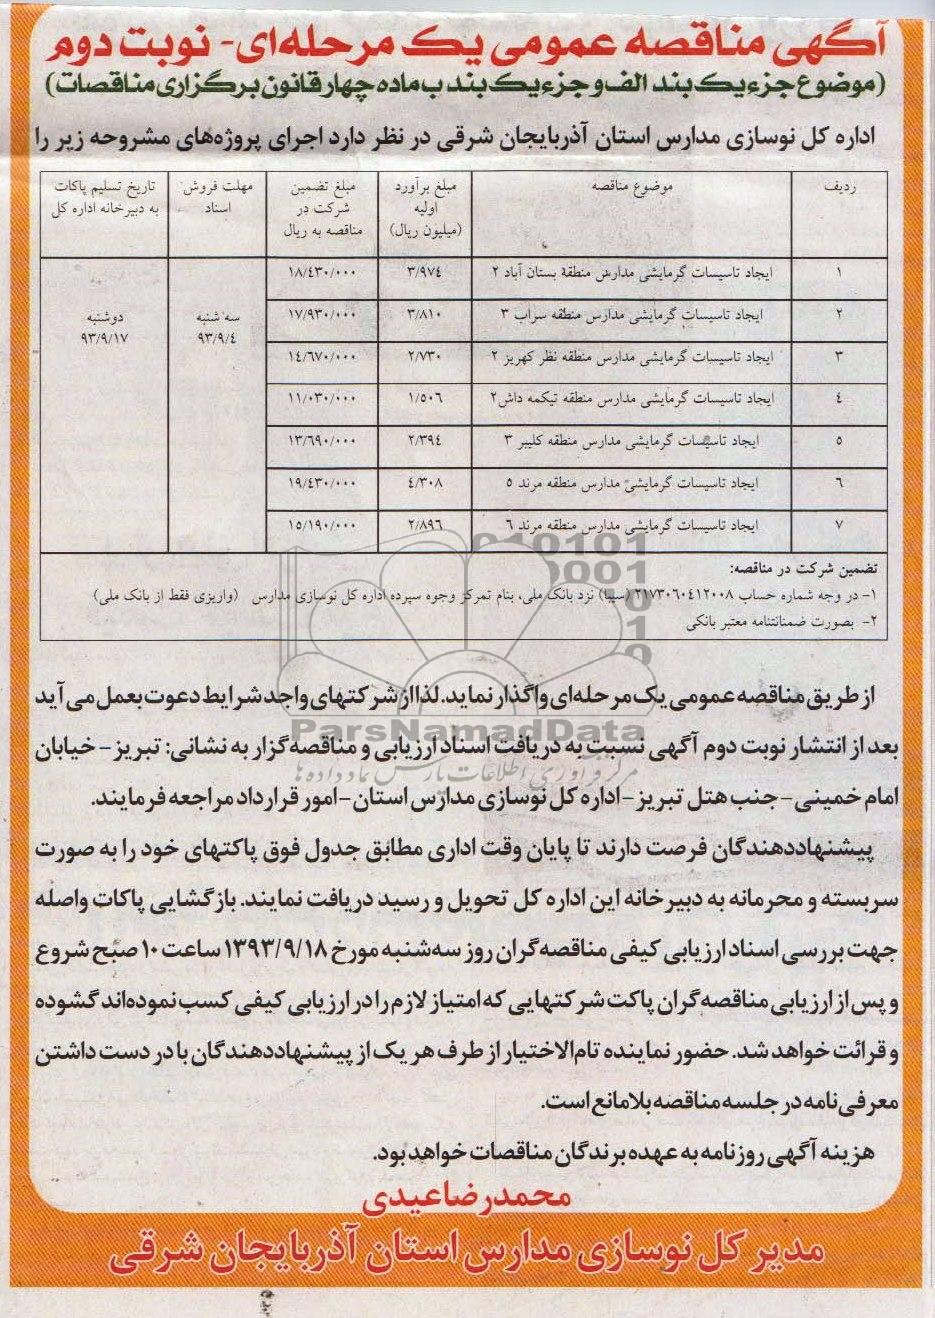 آگهی مناقصه عمومی یک مرحله‌ای- نوبت دوم
(موضوع جزء یک بند الف و جزء یک بند ب ماده چهار قانون برگزاری مناقصات)
اداره کل نوسازی مدارس استان آذربایجان شرقی در نظر دارد اجرای پروژه‌های مشروحه زیر را
ردیف موضوع مناقصه مبلغ برآورد اولیه (میلیون ریال) مبلغ تضمین شرکت در مناقصه به ریال مهلت فروش اسناد تاریخ تسلیم پاکات به دبیرخانه اداره کل
۱ ایجاد تاسیسات گرمایشی مدارس منطقة بستان آباد ۲ ۳/۹۷٤ ۱۸/٤۳۰/۰۰۰
۲ ایجاد تاسیسات گرمایشی مدارس منطقه سراب ۳ ۳/۸۱۰ ۱۷/۹۳۰/۰۰۰ سه شنبه ۹۳/۹/٤ دوشنبه ۹۳/۹/۱۷
۳ ایجاد تاسیسات گرمایشی مدارس منطقه نظر کهریز ۲ ۲/۷۳۰ ۱٤/٦۷۰/۰۰۰
٤ ایجاد تاسیسات گرمایشی مدارس منطقه تیکمه داش۲ ۱/۵۰٦ ۱۱/۰۳۰/۰۰۰
۵ ایجاد تاسیسات گرمایشی مدارس منطقه کلیبر ۳ ۲/۳۹٤ ۱۳/٦۹۰/۰۰۰
٦ ایجاد تاسیسات گرمایشی مدارس منطقه مرند ۵ ٤/۳۰۸ ۱۹/٤۳۰/۰۰۰
۷ ایجاد تاسیسات گرمایشی مدارس منطقه مرند ٦ ۲/۸۹٦ ۱۵/۱۹۰/۰۰۰
تضمین شرکت در مناقصه:
۱- در وجه شماره حساب ۲۱۷۳۰٦۰٤۱۲۰۰۸ (سیبا) نزد بانک ملی، بنام تمرکز وجوه سپرده اداره کل نوسازی مدارس (واریزی فقط از بانک ملی)
۲- بصورت ضمانتنامه معتبر بانکی
از طریق مناقصه عمومی یک مرحله‌ای واگذار نماید. لذا از شرکتهای واجد شرایط دعوت بعمل می آید
ParsNamadData
بعد از انتشار نوبت دوم آگهی نسبت به دریافت اسناد ارزیابی و مناقصه‌گزار به نشانی: تبریز - خیابان
مرکز فرآوری اطلاعات پارس نماد داده‌ها
امام خمینی - جنب هتل تبریز - اداره کل نوسازی مدارس استان - امور قرارداد مراجعه فرمایند.
پیشنهاددهندگان فرصت دارند تا پایان وقت اداری مطابق جدول فوق پاکتهای خود را به صورت
سربسته و محرمانه به دبیرخانه این اداره کل تحویل و رسید دریافت نمایند. بازگشایی پاکات واصله
جهت بررسی اسناد ارزیابی کیفی مناقصه‌گران روز سه‌شنبه مورخ ۱۳۹۳/۹/۱۸ ساعت ۱۰ صبح شروع
و پس از ارزیابی مناقصه‌گران پاکت شرکتهایی که امتیاز لازم را در ارزیابی کیفی کسب نموده‌اند گشوده
و قرائت خواهد شد. حضور نماینده تام‌الاختیار از طرف هر یک از پیشنهاددهندگان با در دست داشتن
معرفی‌نامه در جلسه مناقصه بلامانع است.
هزینه آگهی روزنامه به عهده برندگان مناقصات خواهد بود.
محمدرضا عیدی
مدیر کل نوسازی مدارس استان آذربایجان شرقی